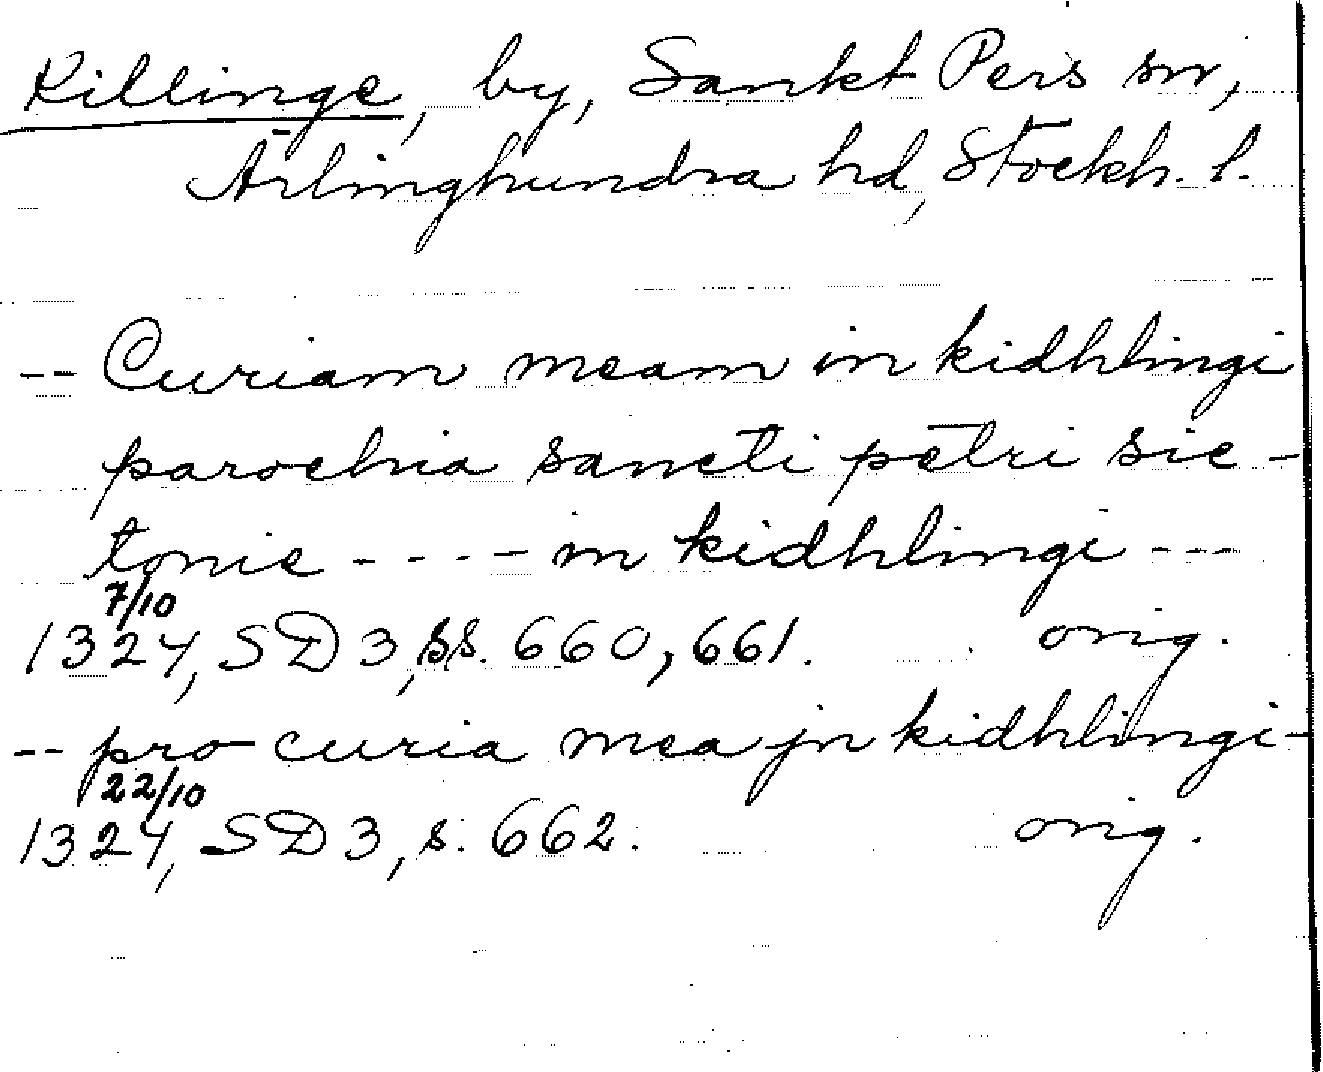 Killinge, by, Sankt Pers sn,
Ärlinghundra hd, Stockh. l.
-- Curiam meam in kidhlingi
parochia sancti petri sic-
tonie - - - - in kidhlingi ---
7/10
1324, SD 3, ss. 660, 661. orig.
-- pro curia mea jn kidhlingi-
22/10
1324, SD 3, s. 662. orig.